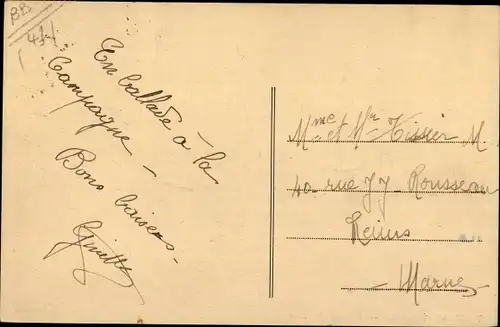 En ballade à la
Campagne -
Bons baisers -
Ginette
Mme et Mr Tissier M.
40 - rue J J - Rousseau
Reims
- Marne -